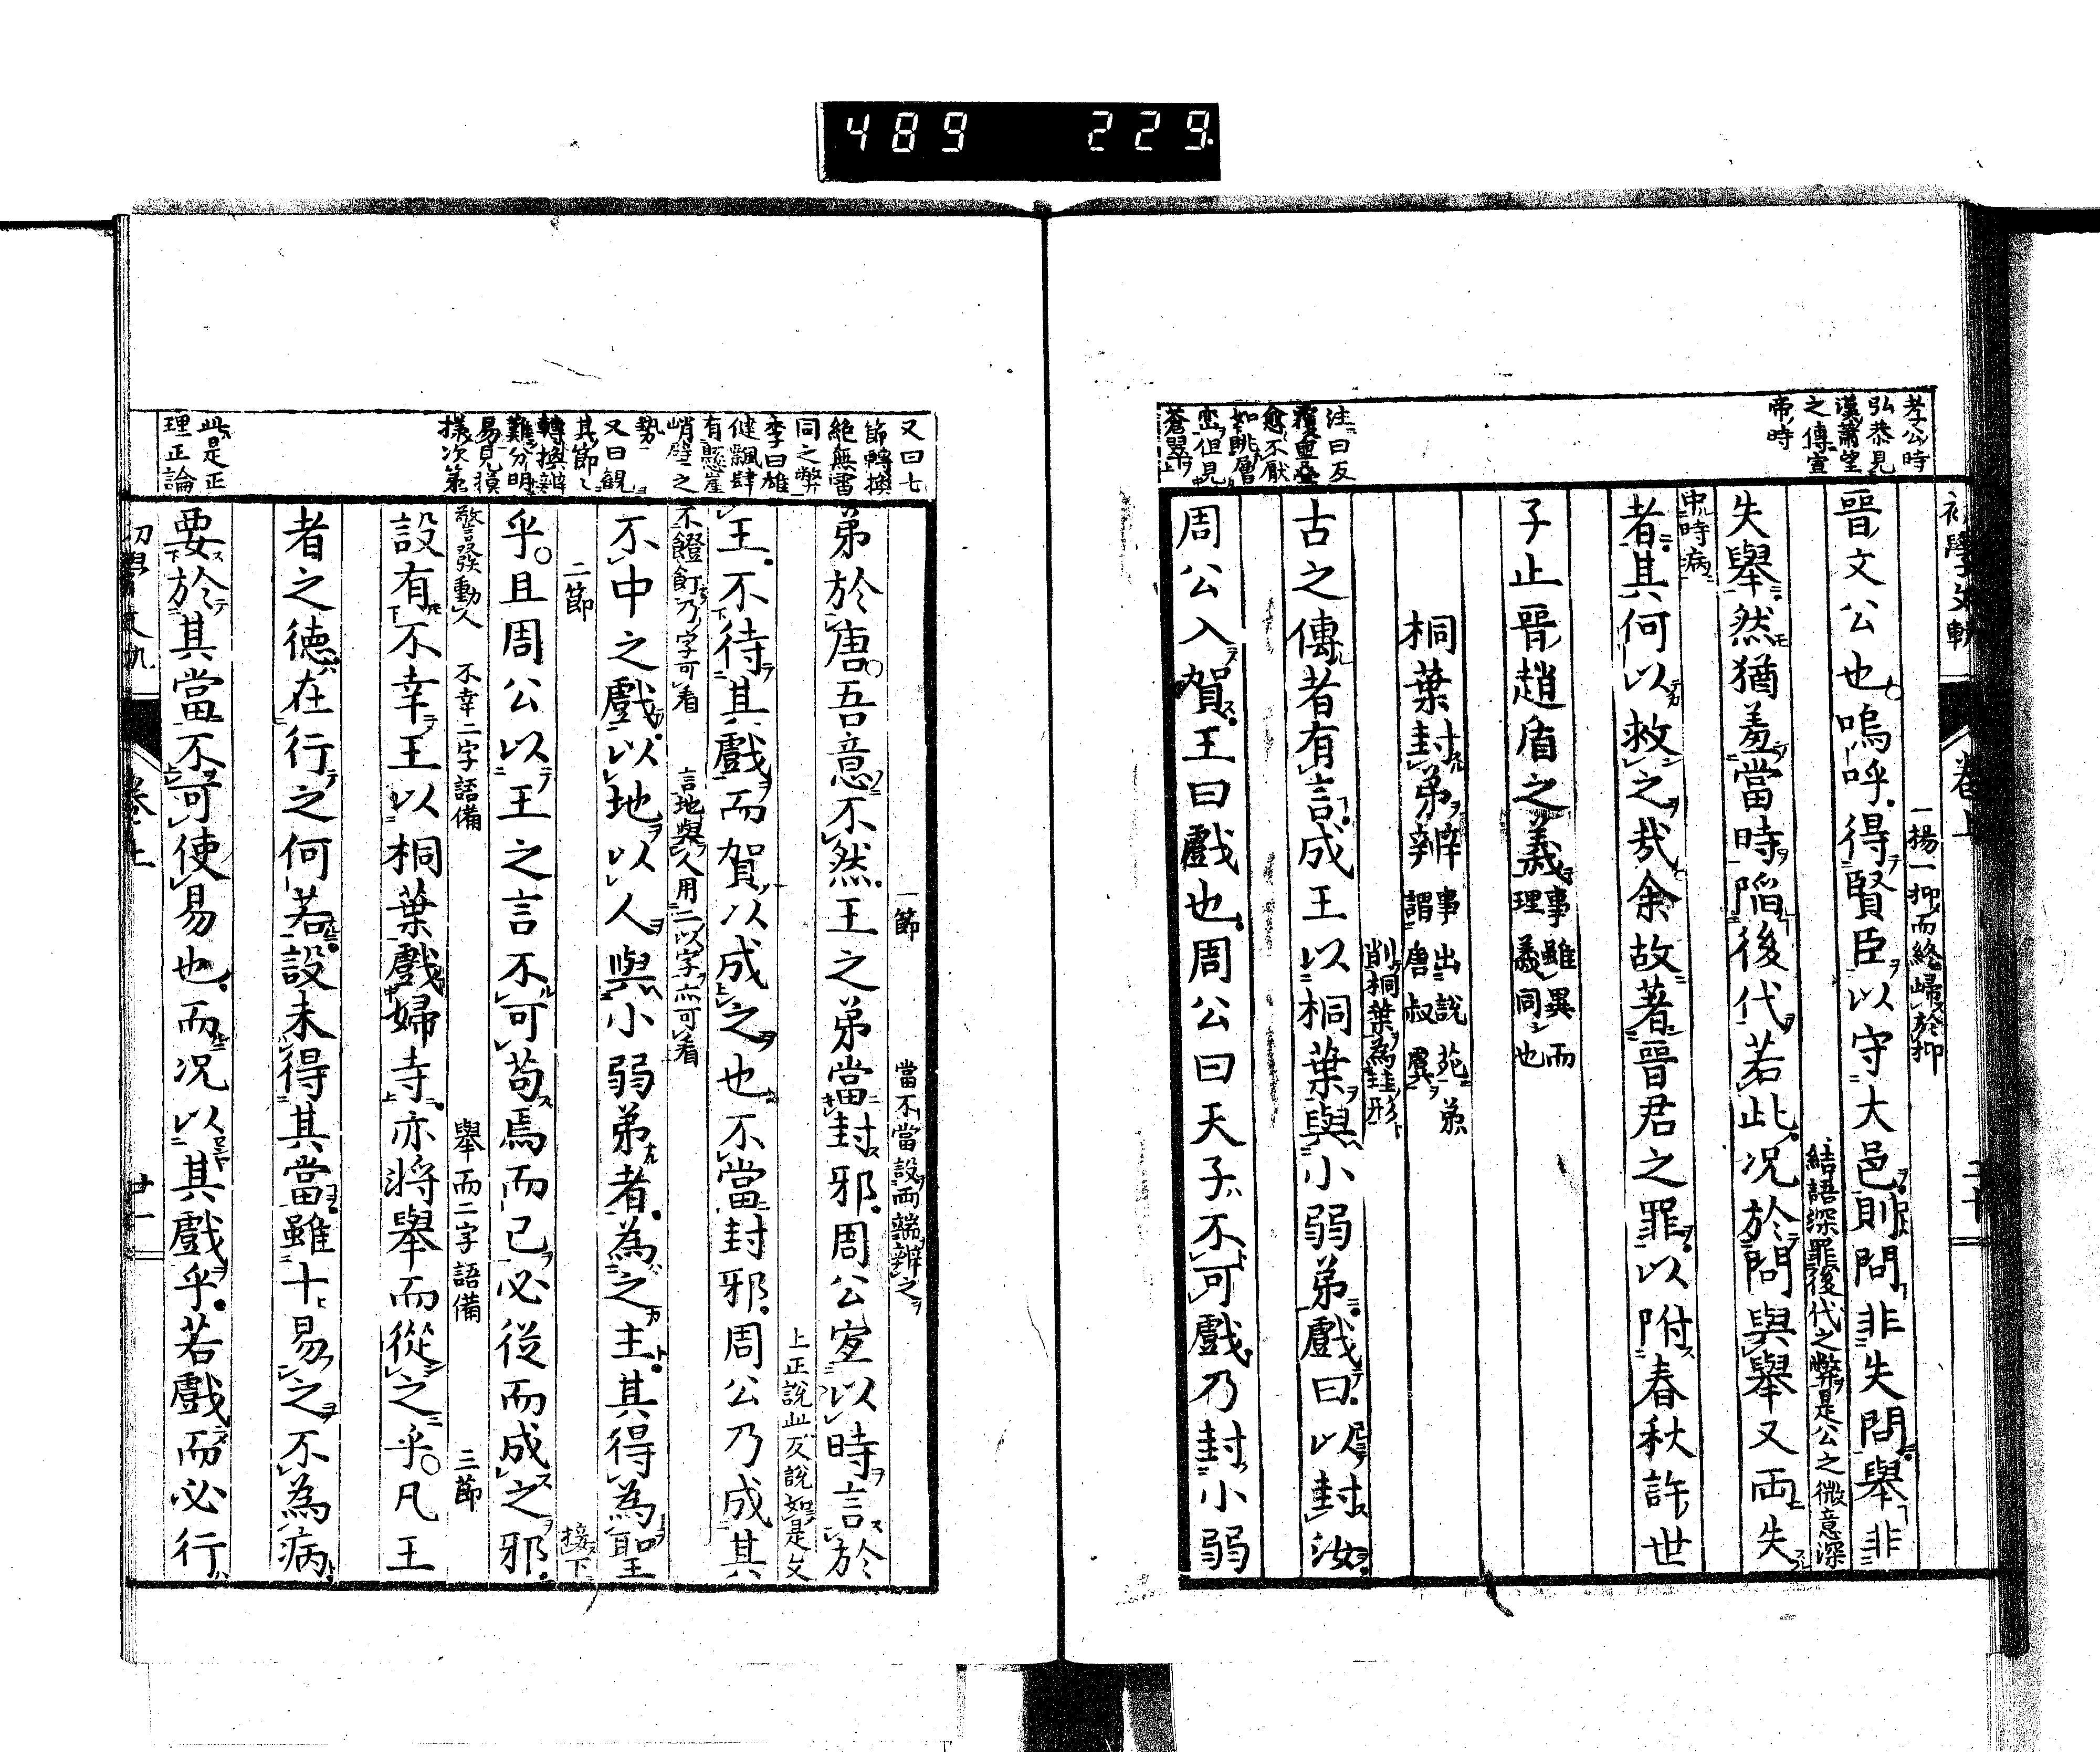 489 229
孝公時
弘恭見
漢蕭望
之傳宣
帝時
注曰反
覆重疊
愈不厭
如眺層
巒但見
蒼翠
卷上
二十
一揚一抑而終歸於抑
晉文公也嗚呼得賢臣以守大邑則問非失問舉非
結語深罪後代之弊是公之微意深
失舉然猶羞當時陷後代若此況於問與舉又兩失
中時病
者其何以救之哉余故著晉君之罪以附春秋許世
子止晉趙盾之義事雖異而理義同也
桐葉封弟辨事出說苑弟謂唐叔虞
削桐葉為珪形
古之傳者有言成王以桐葉與小弱弟戲曰以封汝
周公入賀王曰戲也周公曰天子不可戲乃封小弱
又曰七
節轉換
絕無雷
同之弊
李曰雄
健飄肆
有懸崖
峭壁之
勢
又曰觀
其節々
轉換辨
難分明
易見摸
樣次第
此是正
理正論
一節 當不當設両端辨之
弟於唐吾意不然王之弟當封邪周公宜以時言於
上正說此反說如是文
王不待其戲而賀以成之也不當封邪周公乃成其
不饾飣乃字可看 言地與人用二以字亦可看
不中之戲以地以人與小弱弟者為之主其得為聖
二節 接下
乎且周公以王之言不可苟焉而已必從而成之邪
警發動人 不幸二字語備 舉而二字語備 三節
設有不幸王以桐葉戲婦寺亦將舉而從之乎凡王
者之德在行之何若設未得其當雖十易之不為病
要於其當不可使易也而況以其戲乎若戲而必行
卷上
廿一